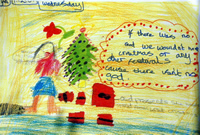 Wednesday
if there was no
and we wouldt no
cristmas or any
other festivals
cause there wisht no
god.